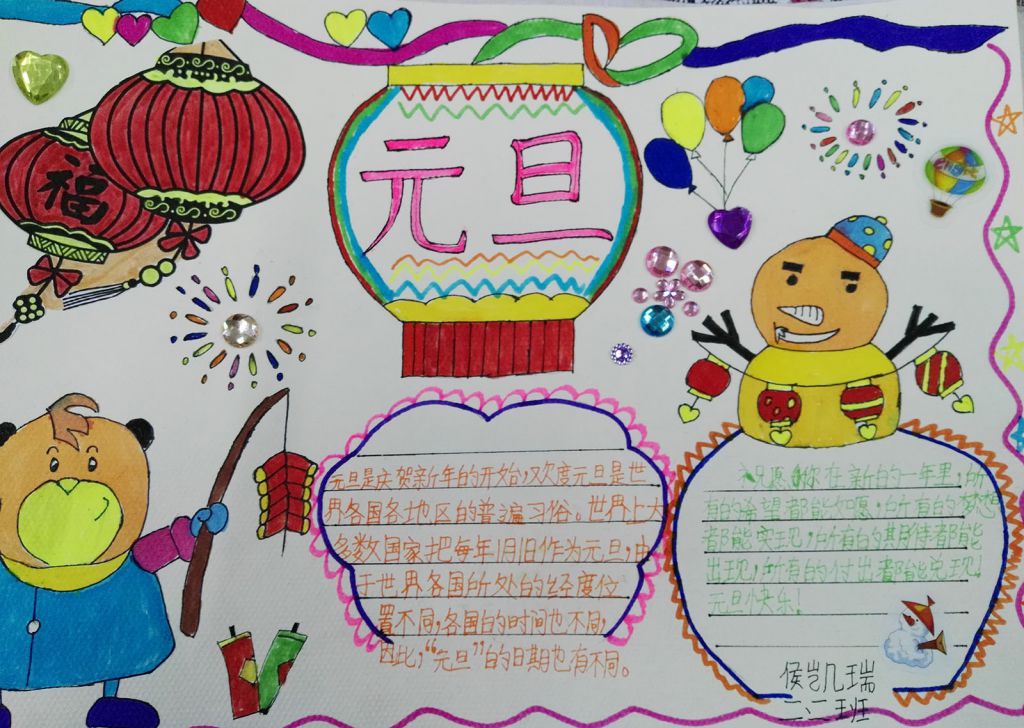 福
元旦
元旦是庆贺新年的开始,欢度元旦是世
界各国各地区的普遍习俗。世界上大
多数国家把每年1月1日作为元旦,由
于世界各国所处的经度位
置不同,各国的时间也不同,
因此,“元旦”的日期也有不同。
祝愿你在新的一年里,所
有的希望都能如愿,所有的梦想
都能实现,所有的期待都能
出现,所有的付出都能兑现!
元旦快乐!
侯凯瑞
二、二班